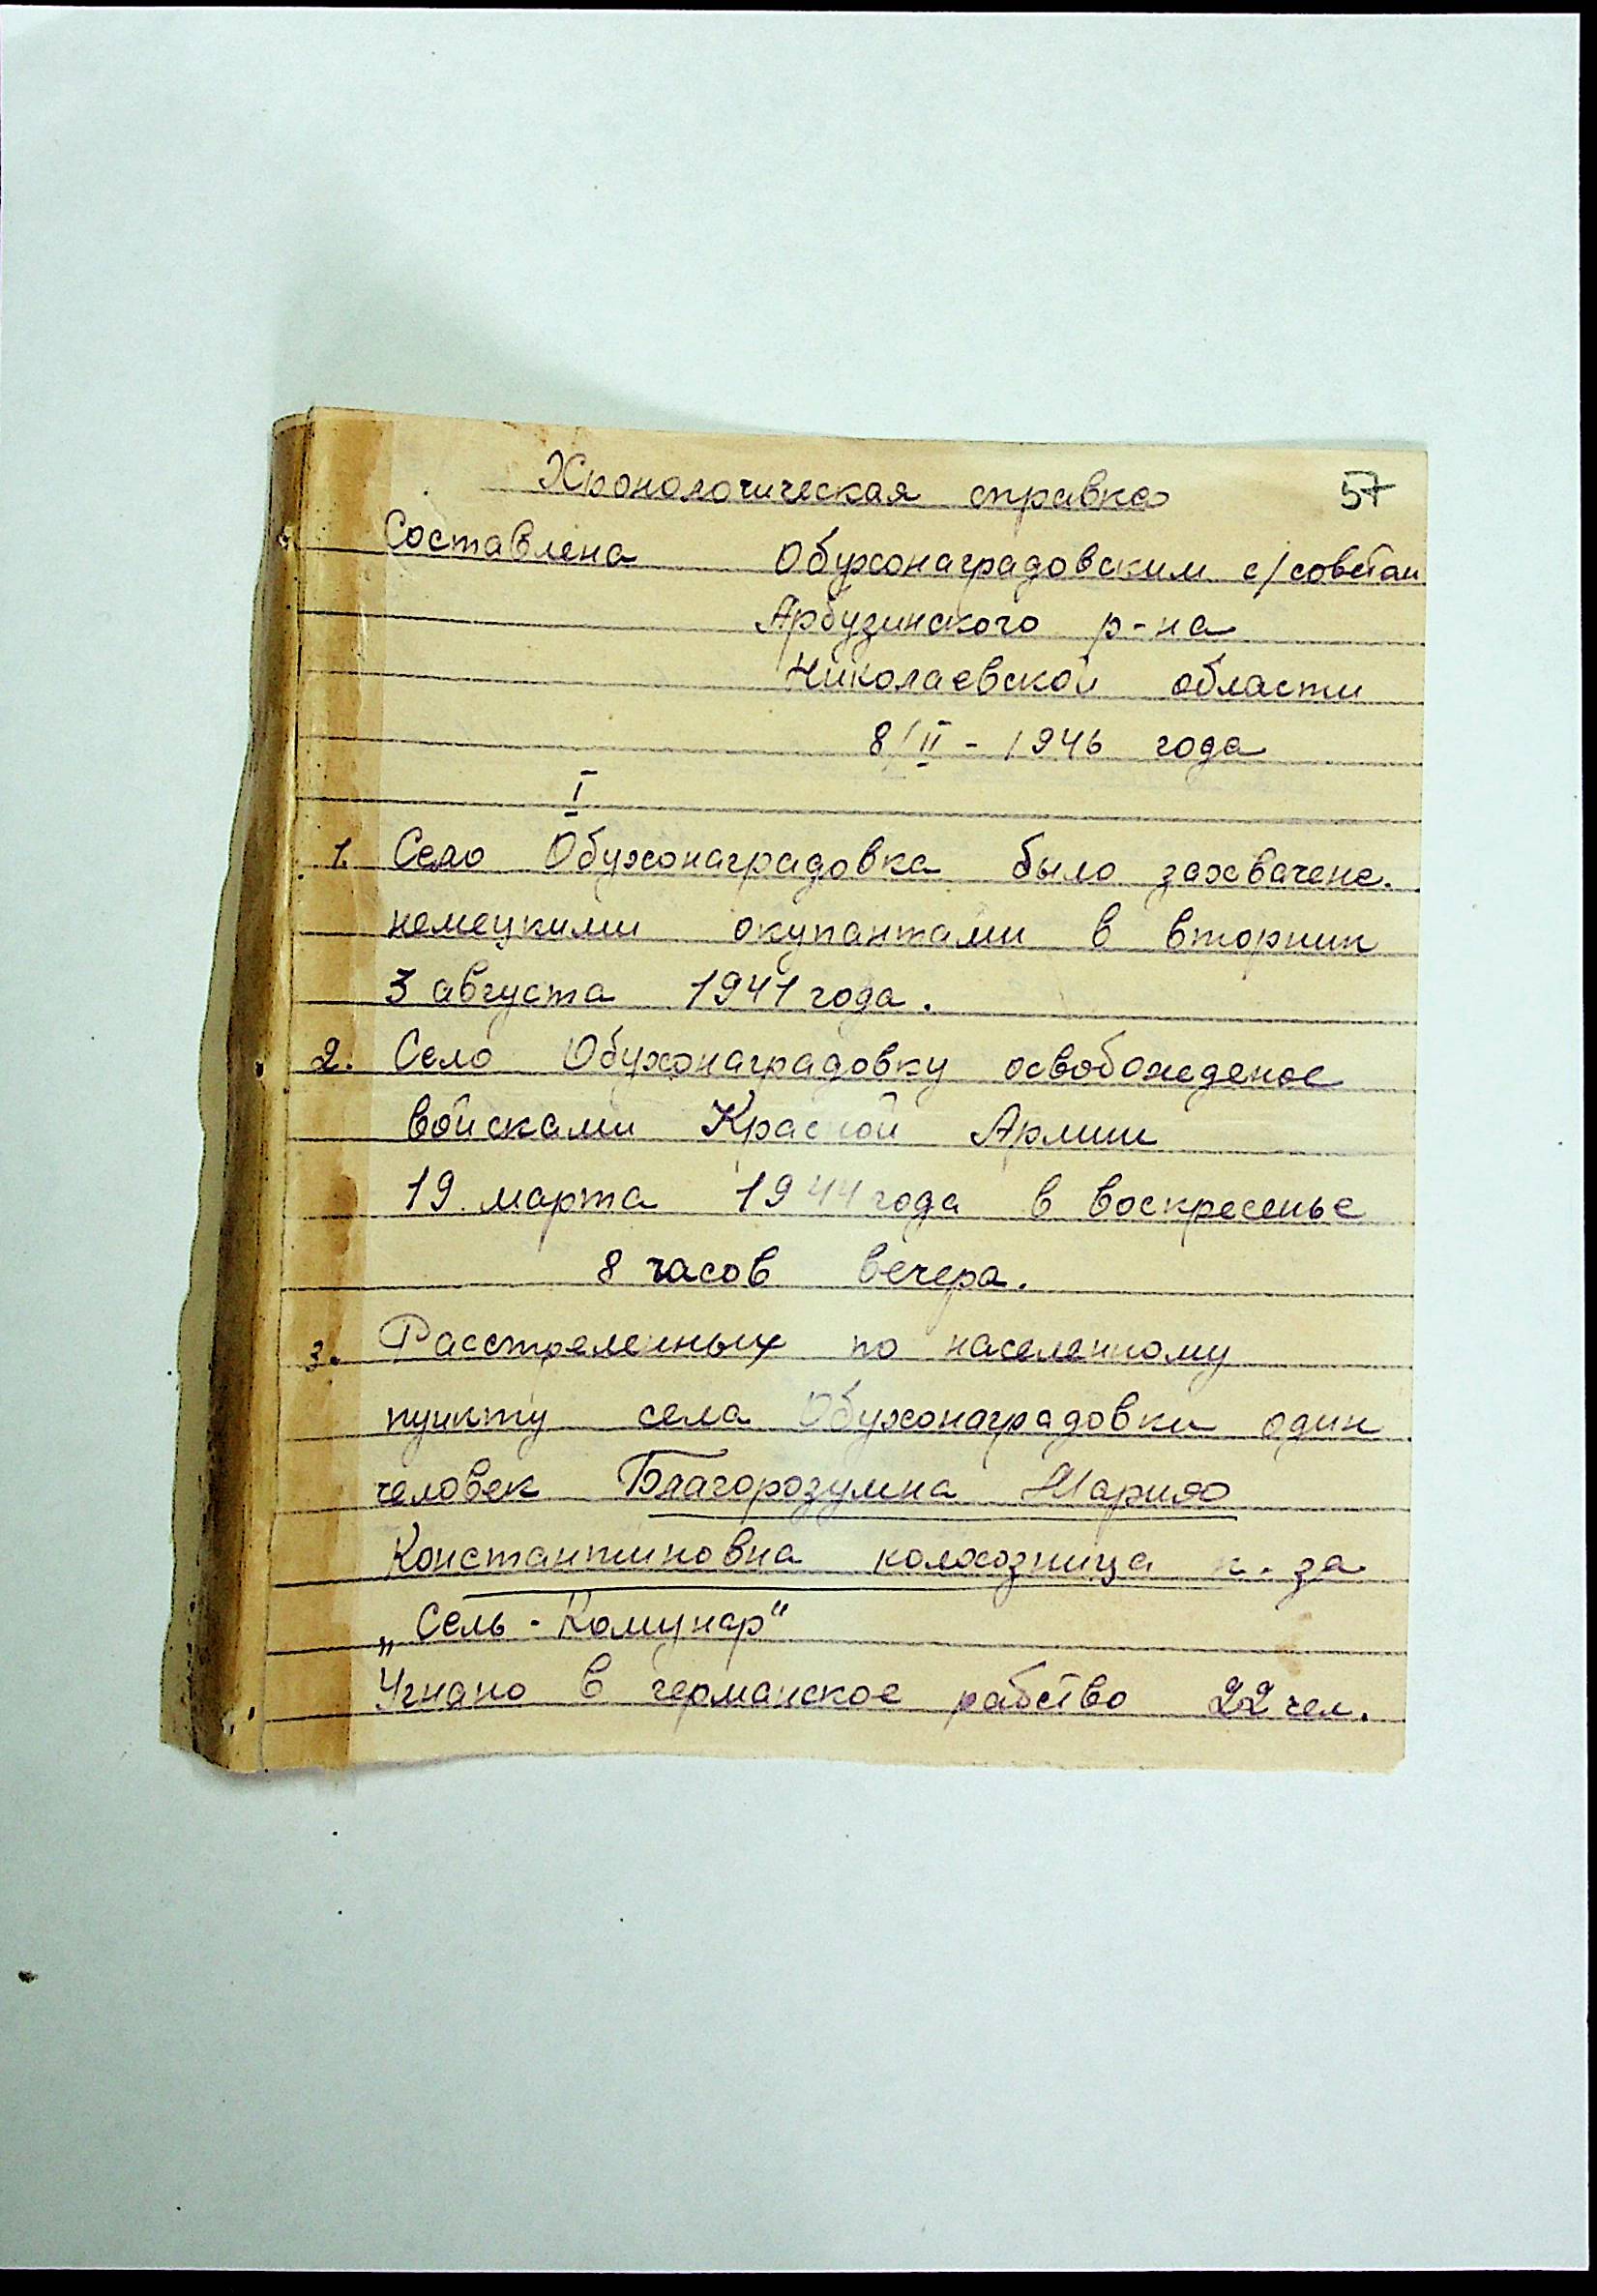 Хронологическая справка 57
Составлена Обухонаградовским с/советом
Арбузинского р-на
Николаевской области
8/II - 1946 года
I
1. Село Обухонаградовка было захвачене.
немецкими окупантами в вторник
3 августа 1941 года.
2. Село Обухонаградовку освобожденое
войсками Красной Армии
19 марта 1944 года в воскресенье
8 часов вечера.
3. Расстреленных по населенному
пункту села Обухонаградовки один
человек Благорозумна Мария
Константиновна колхозница к-за
„Сель-Комунар"
Угнано в германское рабство 22 чел.